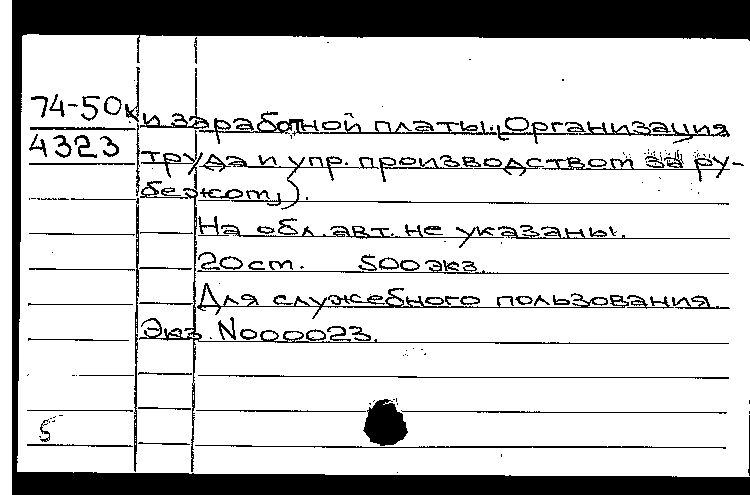 74-50к
4323
и заработной платы. „Организация
труда и упр. производством за ру-
бежом„).
На обл. авт. не указаны.
20 см. 500 экз.
Для служебного пользования.
Экз. N000023.
5